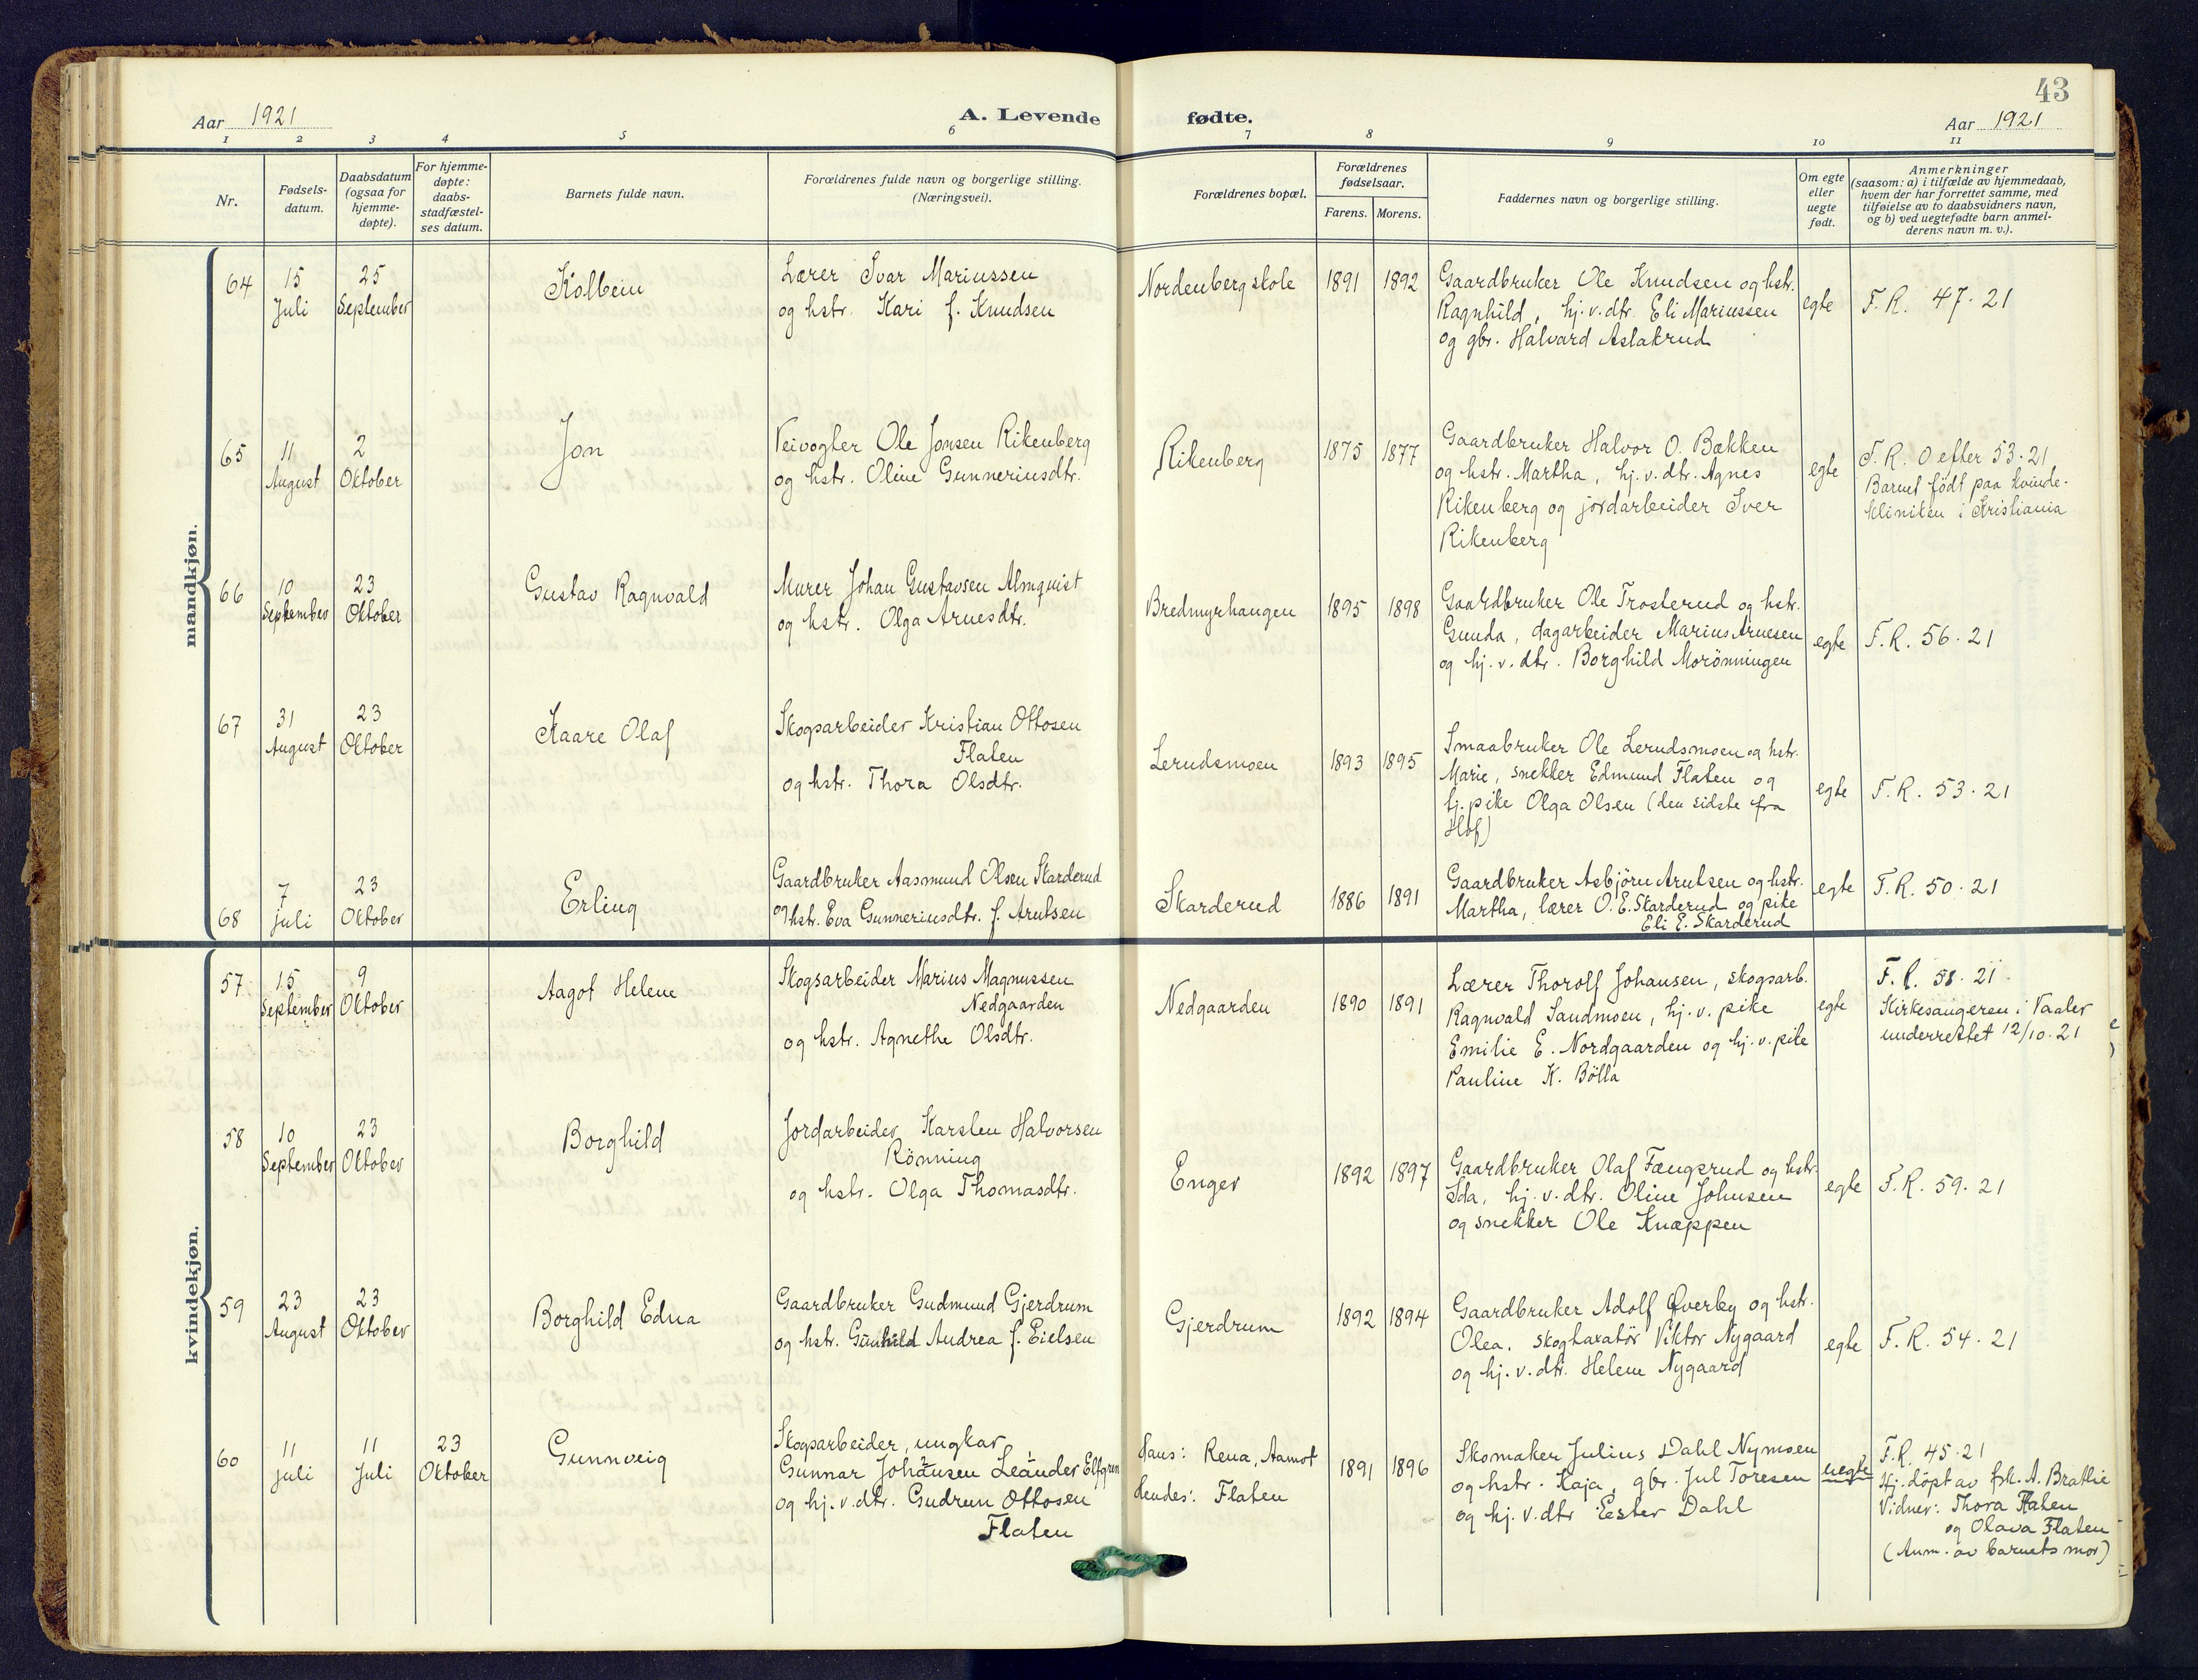 43
Aar 1921
A. Levende
fødte.
Aar 1921
1 2 3 4 5 6 7 8 9 10 11
Nr.
Fødsels-
datum.
Daabsdatum
(ogsaa for
hjemme-
døpte).
For hjemme-
døpte:
daabs-
stadfæstel-
ses datum.
Barnets fulde navn.
Forældrenes fulde navn og borgerlige stilling.
(Næringsvei).
Forældrenes bopæl.
Forældrenes
fødselsaar.
Farens. Morens.
Faddernes navn og borgerlige stilling.
Om egte
eller
uegte
født.
Anmerkninger
(saasom: a) i tilfælde av hjemmedaab,
hvem der har forrettet samme, med
tilføielse av to daabsvidners navn,
og b) ved uegtefødte barn anmel-
derens navn m. v.).
mandkjøn.
64
15
Juli
25
September
Kolbein
Lærer Ivar Mariussen
og hstr. Kari f. Knudsen
Nordenberg skole
1891
1892
Gaardbruker Ole Knudsen og hstr.
Ragnhild, hj. v. dtr. Eli Mariussen
og gbr. Halvard Aslakrud
egte
F. R. 47. 21
65
11
August
2
Oktober
Jon
Veivogter Ole Jonsen Rikenberg
og hstr. Oline Gunneriusdtr.
Rikenberg
1875
1877
Gaardbruker Halvor O. Bækken
og hstr. Martha, hj. v. dtr. Agnes
Rikenberg og jordarbeider Iver
Rikenberg
egte
F. R. 0 efter 53. 21
Barnet født paa kvinde-
kliniken i Kristiania
66
10
September
23
Oktober
Gustav Ragnvald
Murer Johan Gustavsen Almquist
og hstr. Olga Arnesdtr.
Bredmyrhaugen
1895
1898
Gaardbruker Ole Trosterud og hstr.
Gunda, dagarbeider Marius Arnesen
og hj. v. dtr. Borghild Morønningen
egte
F. R. 56. 21
67
31
August
23
Oktober
Kaare Olaf
Skogsarbeider Kristian Ottosen
Flaten
og hstr. Thora Olsdtr.
Lerudsmoen
1893
1895
Smaabruker Ole Lerudsmoen og hstr.
Marie, snekker Edmund Flaten og
tj. pike Olga Olsen (den sidste fra
Hof)
egte
F. R. 53. 21
68
7
juli
23
Oktober
Erling
Gaardbruker Aasmund Olsen Skarderud
og hstr. Eva Gunneriusdtr. f. Arntsen
Skarderud
1886
1891
Gaardbruker Asbjørn Arntsen og hstr.
Martha, lærer O. E. Skarderud og pike
Eli E. Skarderud
egte
F. R. 50. 21
kvindekjøn.
57
15
September
9
Oktober
Aagot Helene
Skogsarbeider Marius Magnussen
Nedgaarden
og hstr. Agnethe Olsdtr.
Nedgaarden
1890
1891
Lærer Thorolf Johansen, skogsarb.
Ragnvald Sandmoen, hj. v. pike
Emilie E. Nordgaarden og hj. v. pike
Pauline K. Bølla
egte
F. R. 58. 21.
Kirkesangeren i Vaaler
underrettet 12/10. 21
58
10
September
23
Oktober
Borghild
Jordarbeider Karsten Halvorsen
Rønning
og hstr. Olga Thomasdtr.
Enger
1892
1897
Gaardbruker Olaf Fængsrud og hstr.
Ida, hj. v. dtr. Oline Johnsen
og snekker Ole Knappen
egte
F. R. 59. 21
59
23
August
23
Oktober
Borghild Edna
Gaardbruker Gudmund Gjerdrum
og hstr. Gunhild Andrea f. Eielsen
Gjerdrum
1892
1894
Gaardbruker Adolf Øverby og hstr.
Olea, skogtaxatør Viktor Nygaard
og hj. v. dtr. Helene Nygaard
egte
F. R. 54. 21
60
11
juli
11
Juli
23
Oktober
Gunnveig
Skogsarbeider, ungkar
Gunnar Johansen Leander Elfgren
og hj. v. dtr. Gudrun Ottosen
Flaten
Hans: Rena, Aamot
Hendes: Flaten
1891
1896
Skomaker Julius Dahl Nymoen
og hstr. Kaja, gbr. Jul Toresen
og hj. v. dtr Ester Dahl
uegte
F. R. 45. 21
Hj. døpt av frk. A. Brathe
Vidner: Thora Flaten
og Olava Flaten
(Anm. av barnets mor)